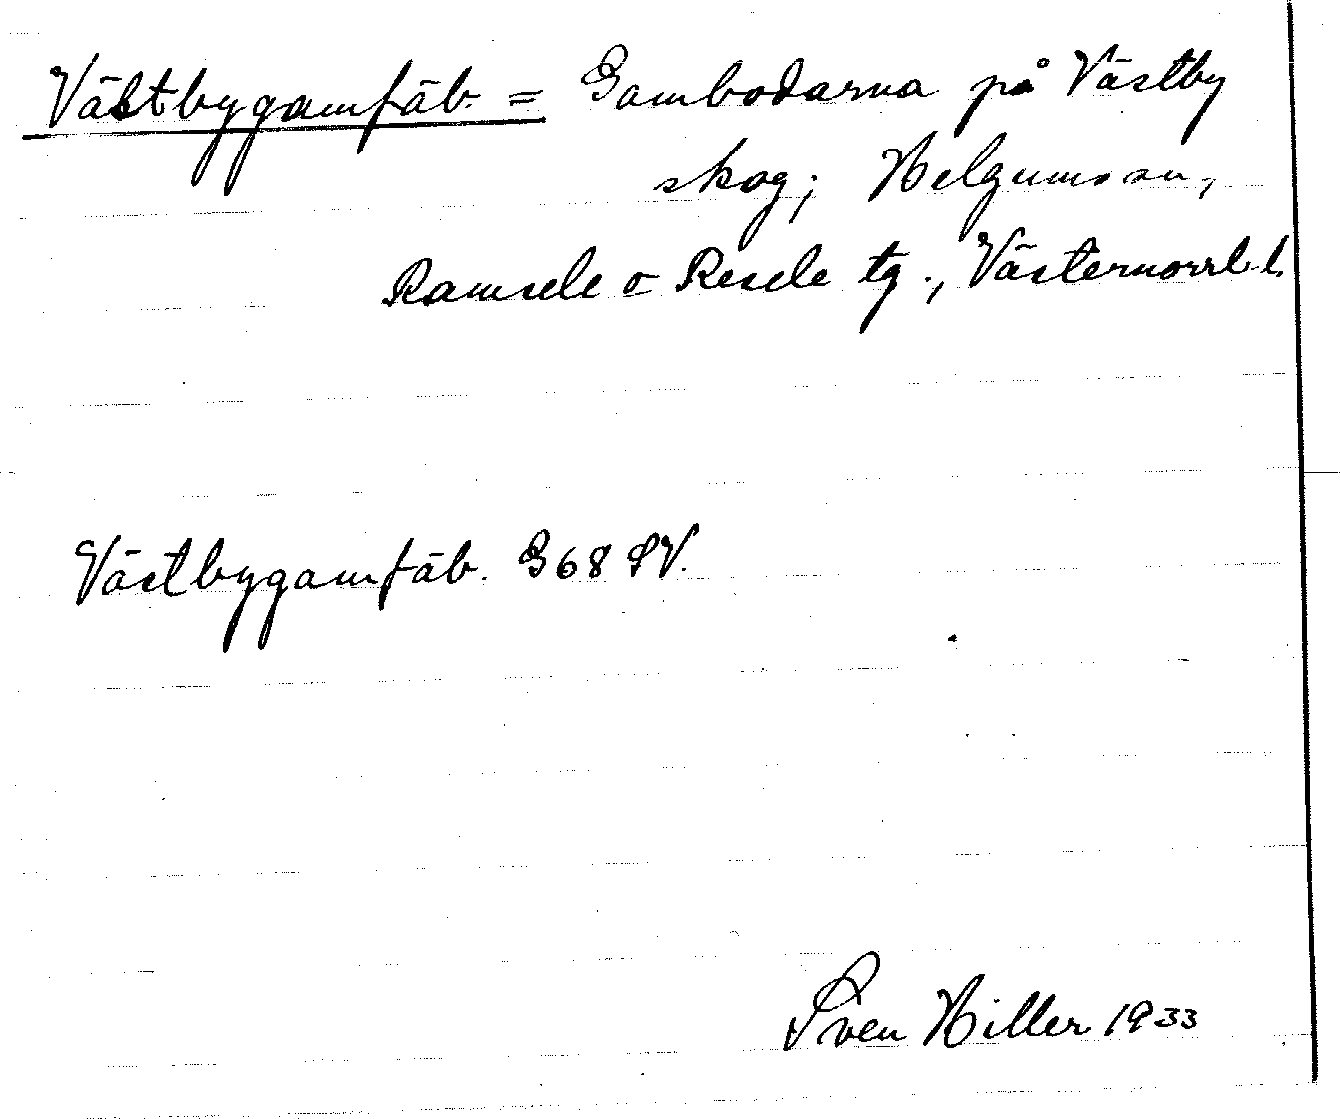 Västbygamfäb. = Gambodarna på Västby
skog; Helgums sn,
Ramsele o Resele tg., Västernorrl. l.
Västbygamfäb. G 68 SV.
Sven Hiller 1933